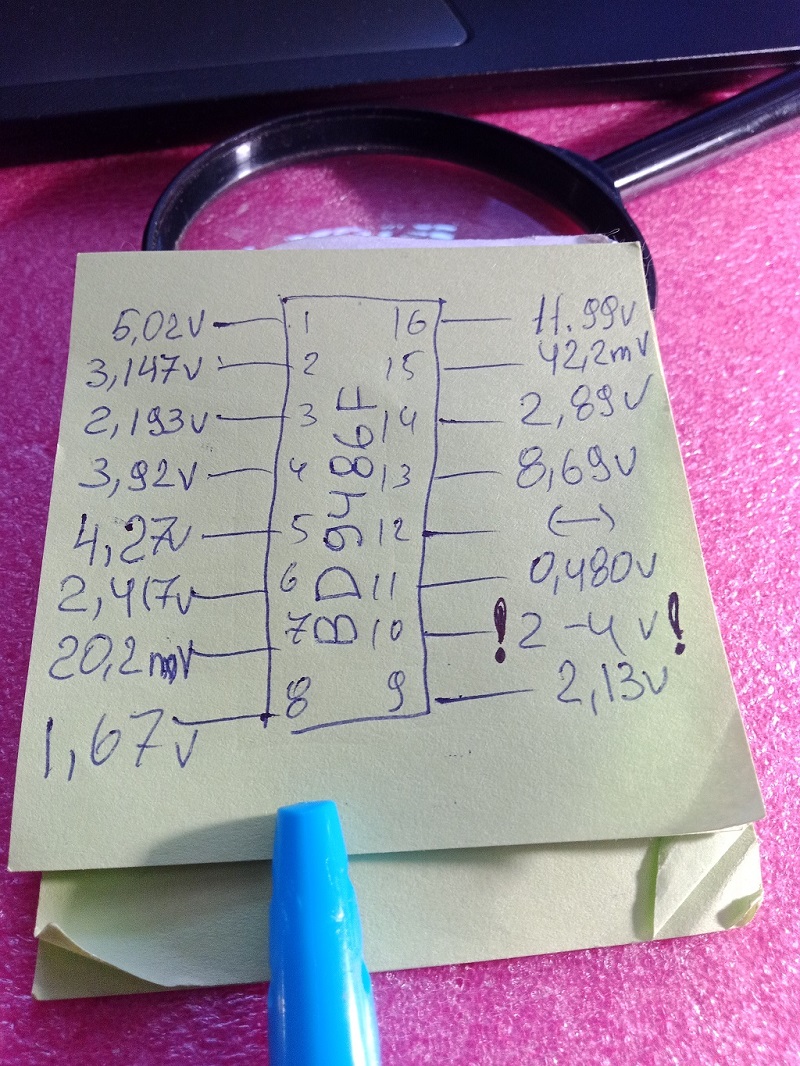 5,02v 1 16 11.99v
3,147v 2 15 42,2mv
2,193v 3 14 2,89v
3,92v 4 13 8,69v
4,27v 5 12 (–)
2,417v 6 11 0,480v
20,2mv 7 10 ! 2-4v !
1,67v 8 9 2,13v
BD9486F